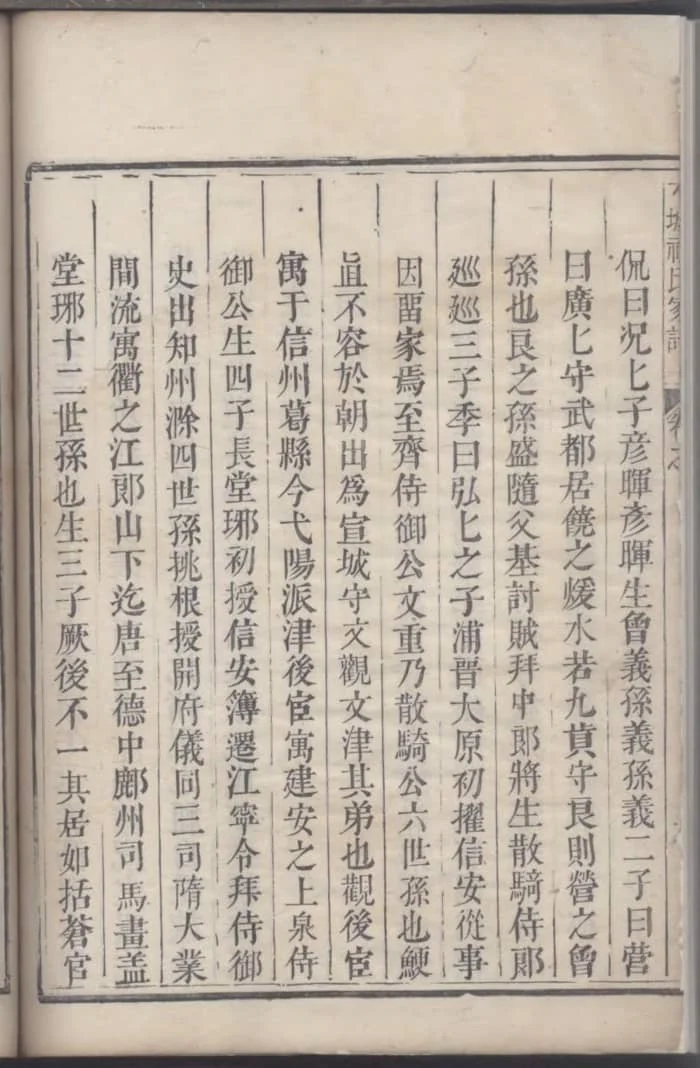 侃曰况匕子彦暉彦暉生曾義孫義孫義二子曰营
曰廣匕守武都居饒之煖水若九真守良則營之曾
孫也良之孫盛隨父基討賊拜中郎將生散騎侍郎
廵廵三子季曰弘匕之子浦晋大原初擢信安從事
因畱家焉至齊侍御公文重乃散騎公六世孫也鯁
直不容於朝出為宣城守文觀文津其弟也觀後宦
寓于信州葛縣今弋陽派津後宦寓建安之上泉侍
御公生四子長堂琊初授信安簿遷江寧令拜侍御
史出知州滁四世孫挑根授開府儀同三司隋大業
間流寓衢之江郎山下迄唐至德中鄜州司馬畫盖
堂琊十二世孫也生三子厥後不一其居如括蒼官
城祝氏家